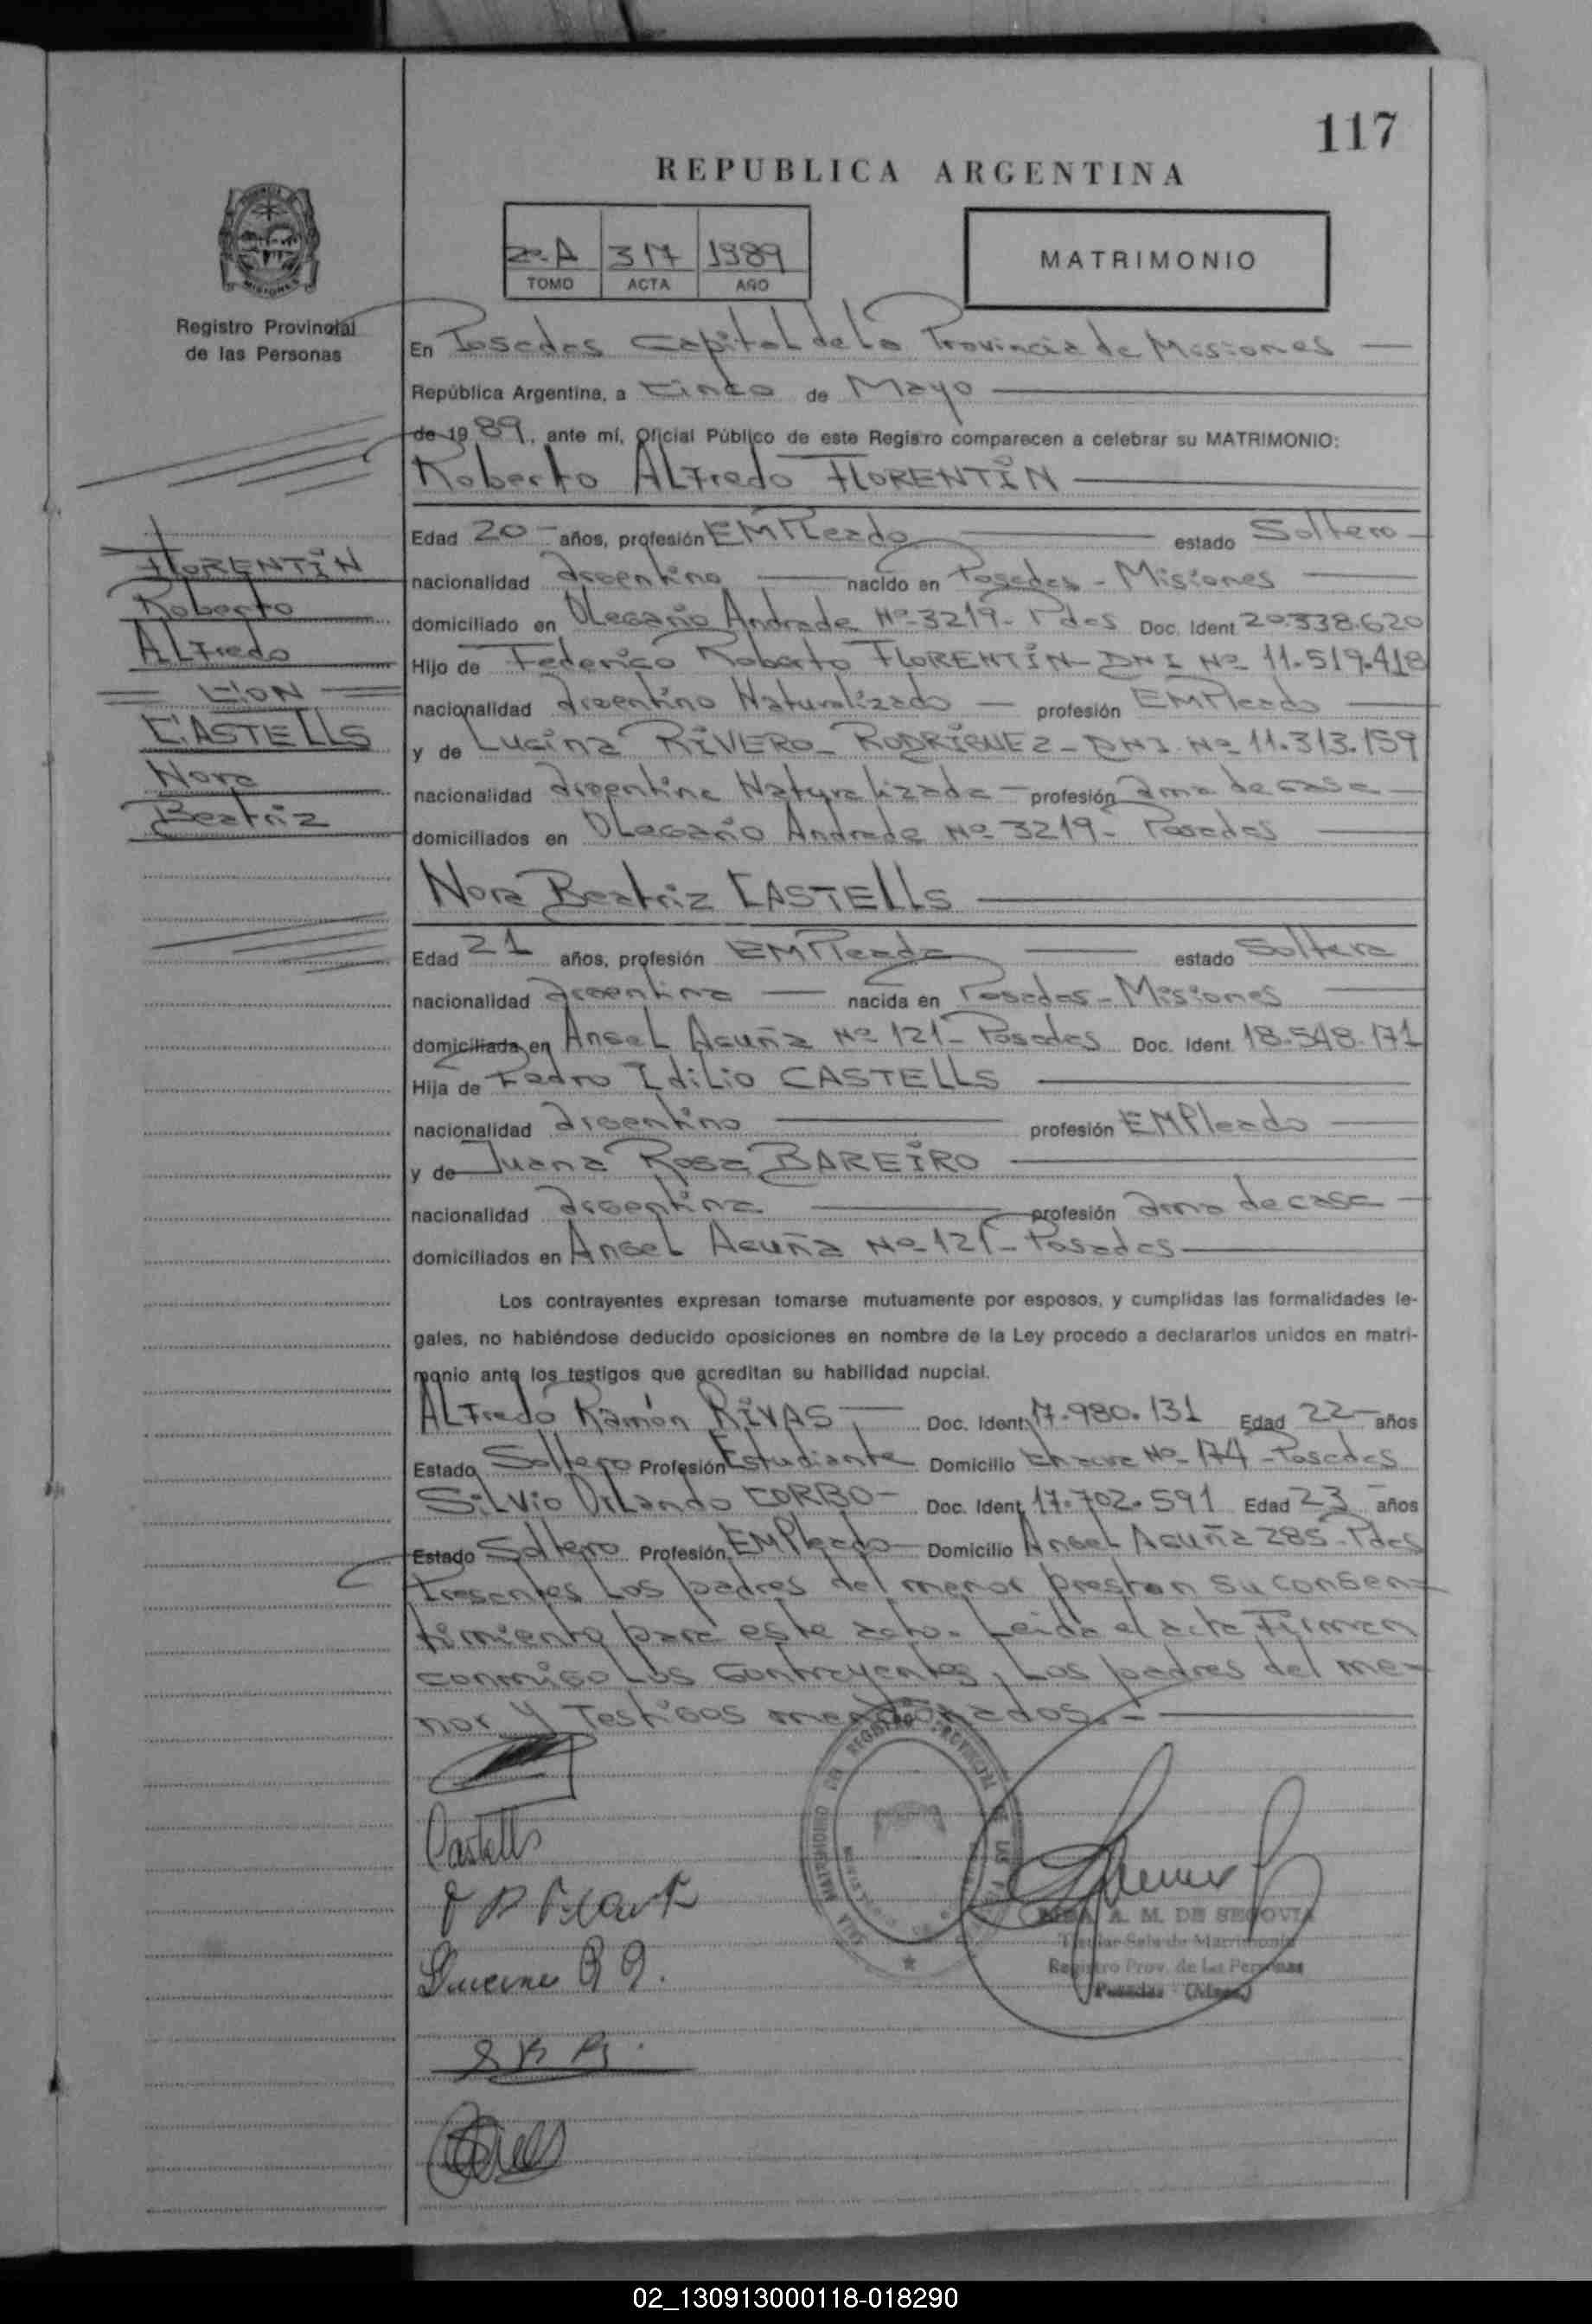 117
REPUBLICA ARGENTINA
2º A 317 1989
TOMO ACTA AÑO
MATRIMONIO
Registro Provincial
de las Personas
En Posadas Capital de la Provincia de Misiones
República Argentina, a Cinco de Mayo
de 1989, ante mí, Oficial Público de este Registro comparecen a celebrar su MATRIMONIO:
Roberto Alfredo FLORENTÍN
FLORENTÍN
Roberto
Alfredo
CON
CASTELLS
Nora
Beatriz
Edad 20 años, profesión EMPleado estado Soltero
nacionalidad argentino nacido en Posadas - Misiones
domiciliado en Olegario Andrade Nº 3219 - Pdas Doc. Ident 20.338.620
Hijo de Federico Roberto FLORENTÍN - DNI Nº 11.519.418
nacionalidad argentino Naturalizado profesión EMPleado
y de Lucina RIVERO - RODRIGUEZ - DNI. Nº 11.313.159
nacionalidad argentina Naturalizada profesión ama de casa
domiciliados en Olegario Andrade Nº 3219 - Posadas
Nora Beatriz CASTELLS
Edad 21 años, profesión EMPleada estado Soltera
nacionalidad argentina nacida en Posadas - Misiones
domiciliada en Angel Acuña Nº 121 - Posadas Doc. Ident. 18.548.171
Hija de Pedro Idilio CASTELLS
nacionalidad argentino profesión EMPleado
y de Juana Rosa BAREIRO
nacionalidad argentina profesión ama de casa
domiciliados en Angel Acuña Nº 121 - Posadas
Los contrayentes expresan tomarse mutuamente por esposos, y cumplidas las formalidades le-
gales, no habiéndose deducido oposiciones en nombre de la Ley procedo a declararlos unidos en matri-
monio ante los testigos que acreditan su habilidad nupcial.
Alfredo Ramón RIVAS Doc. Ident. 17.980.131 Edad 22 años
Estado Soltero Profesión Estudiante Domicilio Nº 174 - Posadas
Silvio Orlando CORBO - Doc. Ident. 17.702.591 Edad 23 años
Estado Soltero Profesión EMPleado Domicilio Angel Acuña 285 - Pdas
Presentes los padres del menor prestan su consen-
timiento para este acto. Leida el acta, Firman
conmigo los contrayentes, los padres del me-
nor y Testigos mencionados. -
Castells
A. M. DE SEGOVIA
Titular Sala de Matrimonio
Registro Prov. de las Personas
Posadas (Mnes.)
02_130913000118-018290